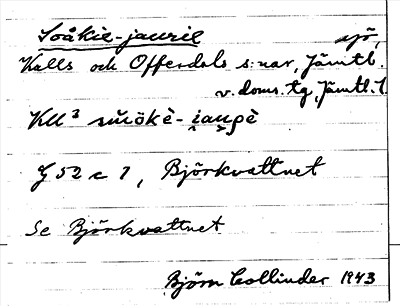 Soåkie-jaurie sjö,
Kalls och Offerdals s:nar, Jämtl.
v. doms. tg, Jämtl. l.
KU³
J 52 c 1, Björkvattnet
Se Björkvattnet
Björn Collinder 1943